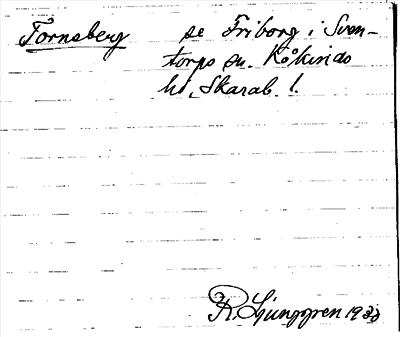 Tornsberg se Friborg i Sven-
torps sn. Kåkinds
hd, Skarab. l.
R. Ljunggren 1930